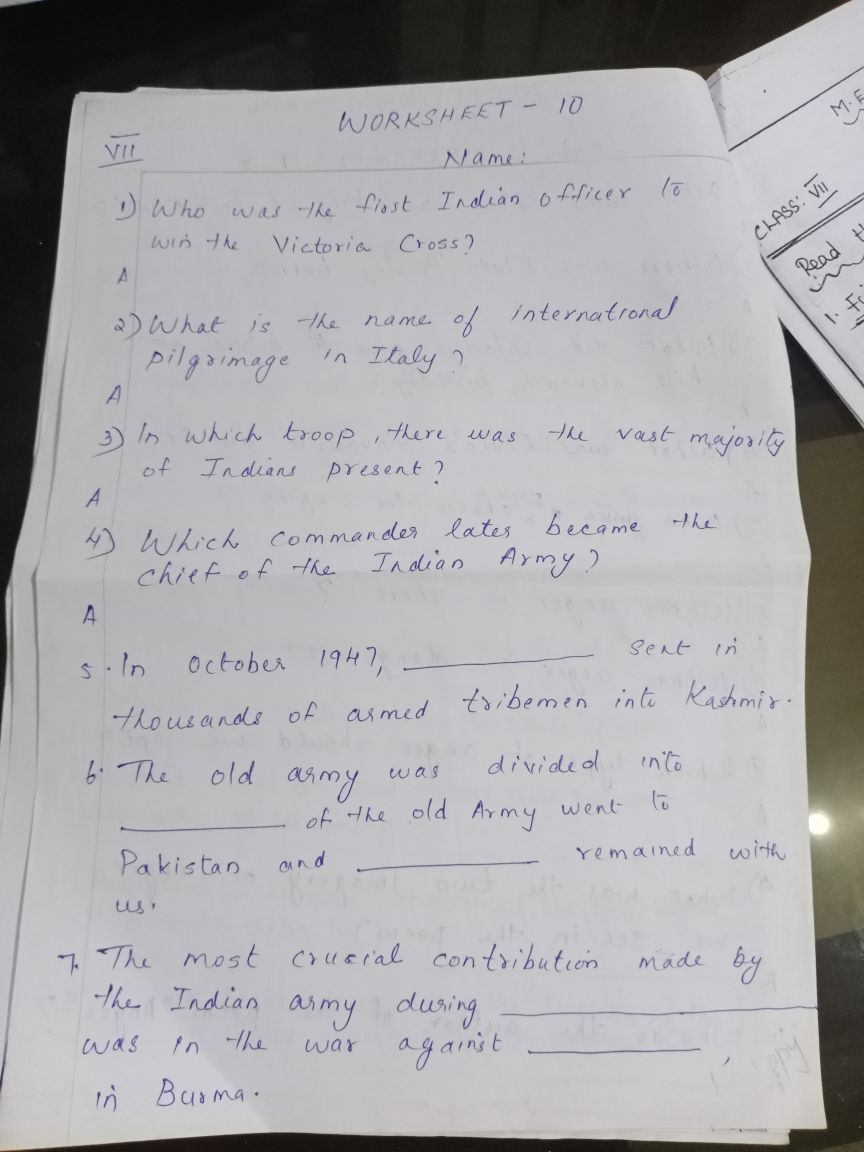 WORKSHEET - 10
VII
Name:
1) Who was the first Indian officer to
win the Victoria Cross?
A
2) What is the name of international
pilgrimage in Italy?
A
3) In which troop, there was the vast majority
of Indians present?
A
4) Which commander later became the
chief of the Indian Army?
A
5. In October 1947, __________ sent in
thousands of armed tribemen into Kashmir.
6. The old army was divided into
__________ of the old Army went to
Pakistan and __________ remained with
us.
7. The most crucial contribution made by
the Indian army during __________
was in the war against __________,
in Burma.
CLASS: VII
Read
1.